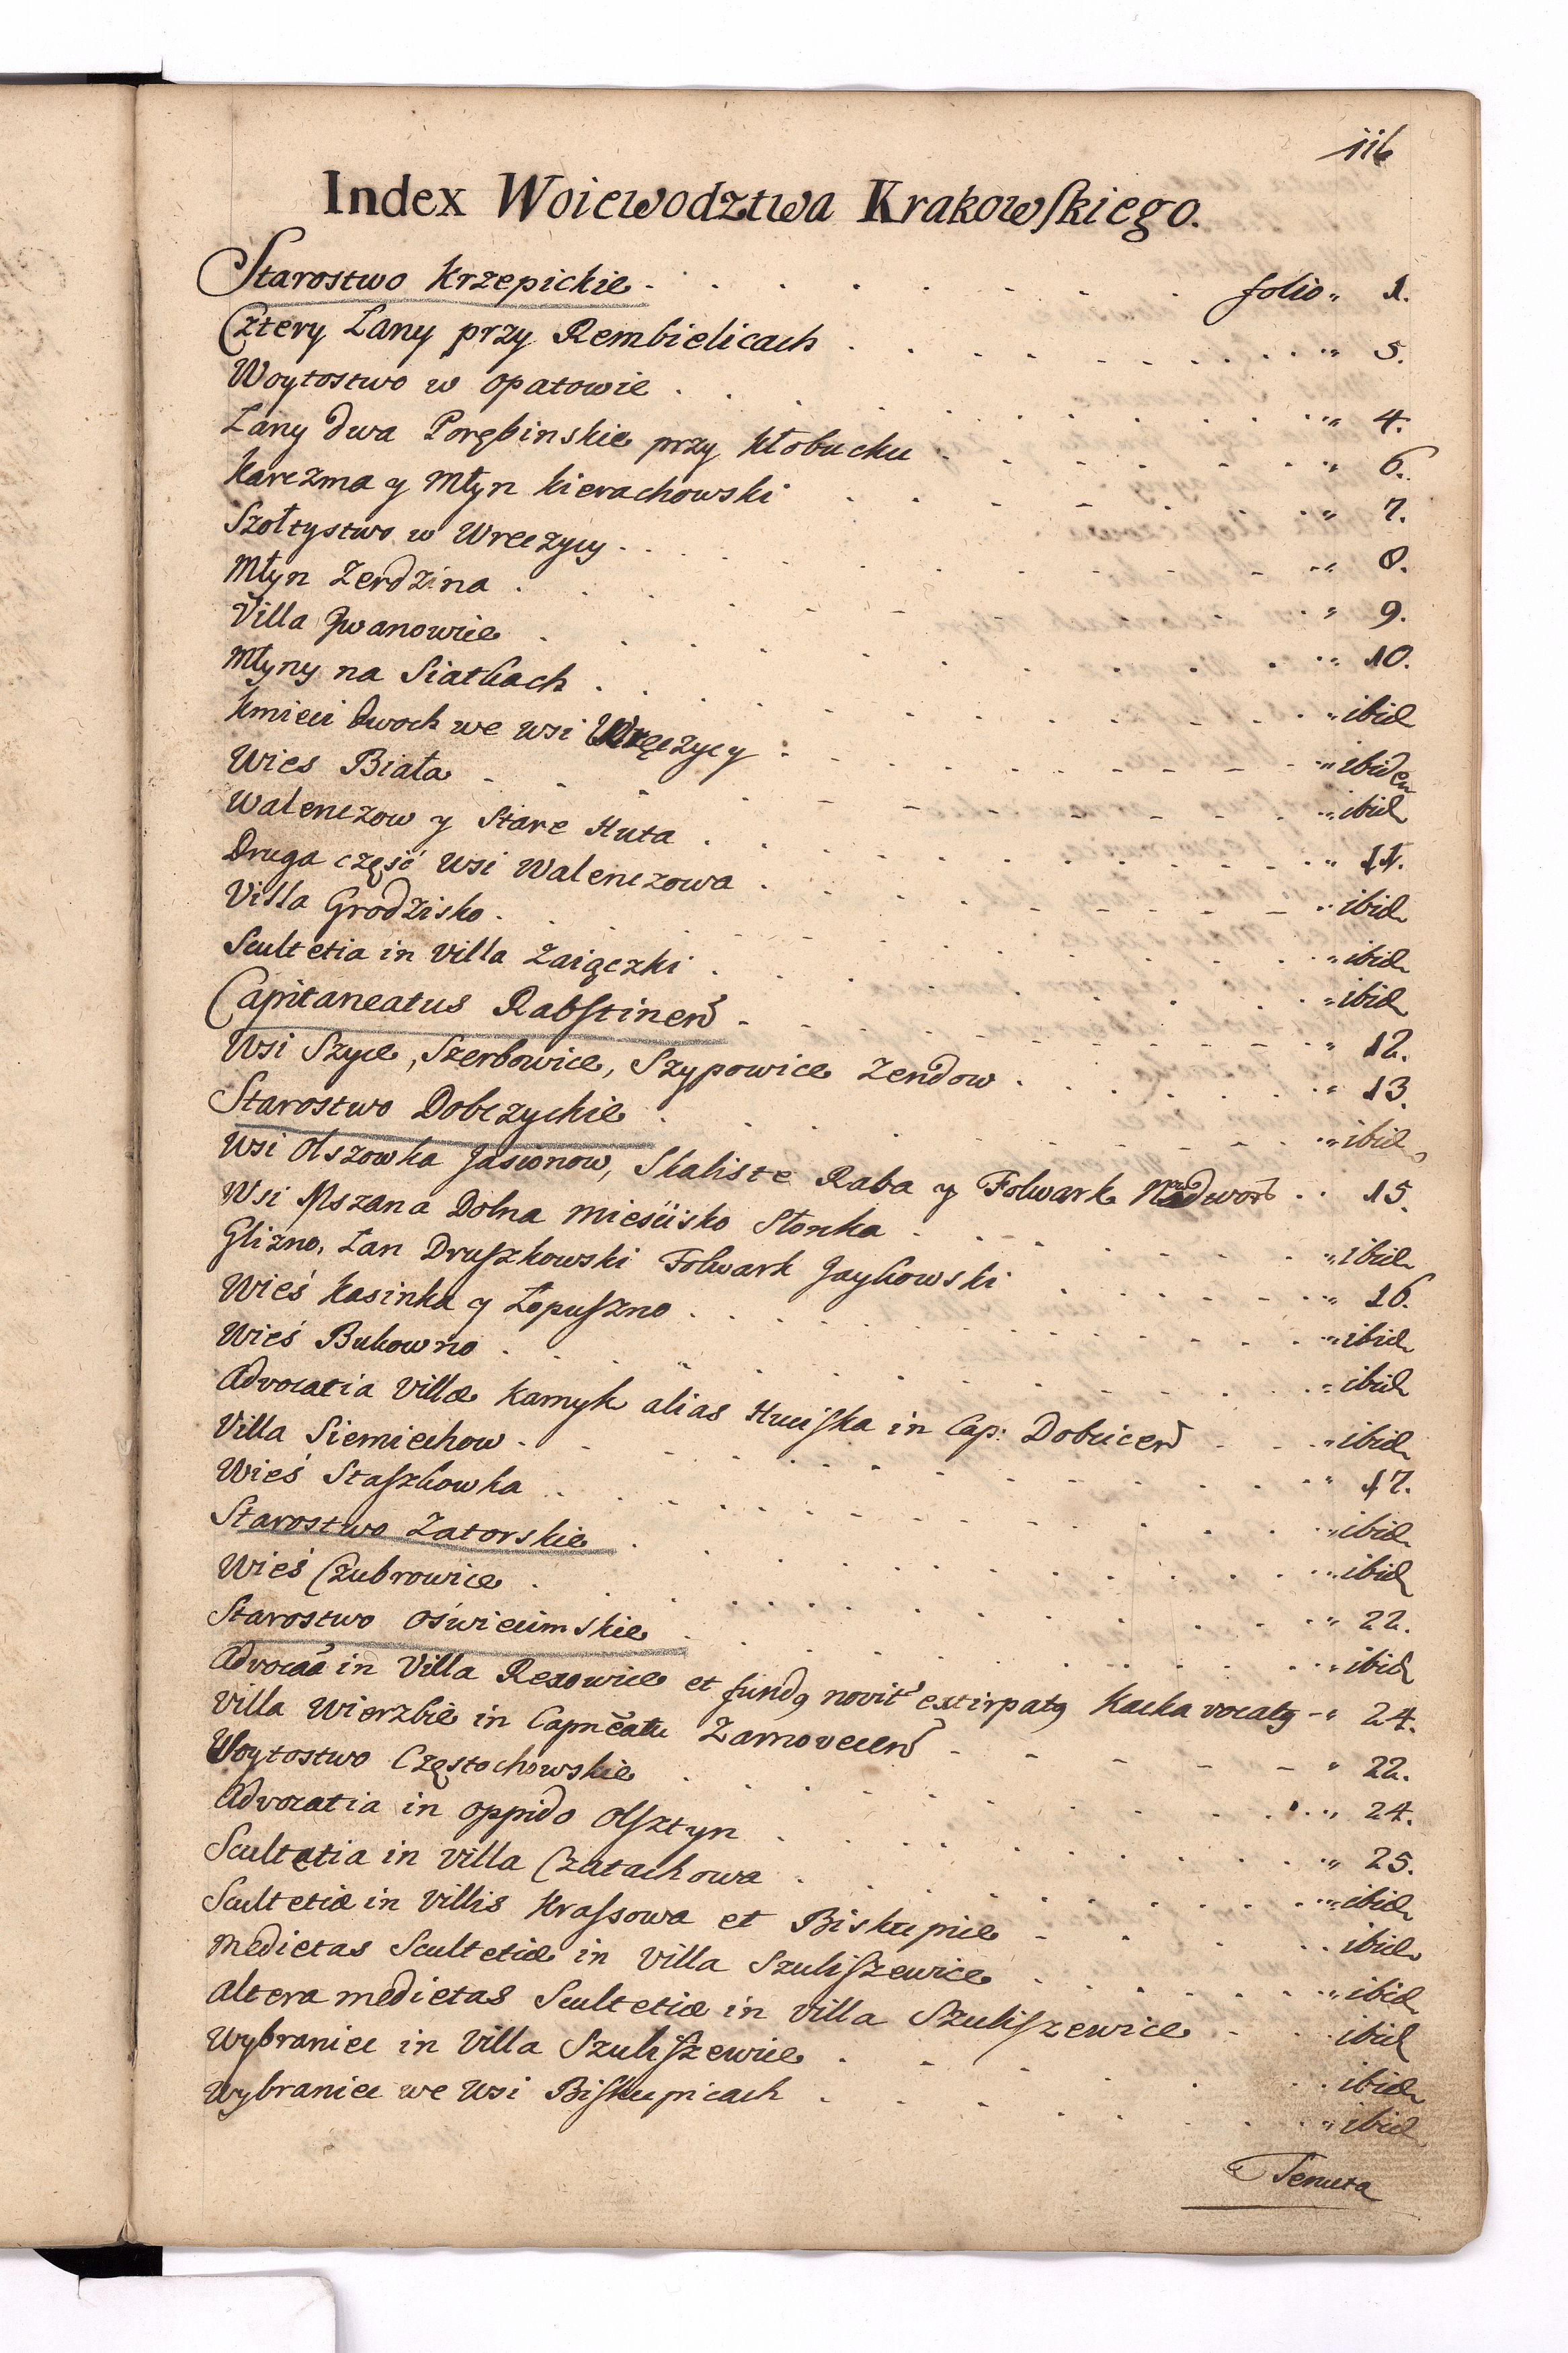 116
Index Woiewodztwa Krakowskiego.
Starostwo Krzepickie . . . . . . . . folio „ 1.
Cztery Łany przy Rembielicach . . . . . . . „ 5.
Woytostwo w Opatowie . . . . . . . „ 4.
Łany dwa Porębinskie przy Kłobucku . . . . . . „ 6.
Karczma y Młyn Kierachowski . . . . . . „ 7.
Szołtystwo w Wreczycy . . . . . . . „ 8.
Młyn Zerdzina . . . . . . . „ 9.
Villa Jwanowice . . . . . . . „ 10.
Młyny na Siatkach . . . . . . . „ ibid
Kmieci dwoch we wsi Wręczycy . . . . . . „ ibidem
Wies Biała . . . . . . . „ ibid
Walenczow y Stare Huta . . . . . . . „ 11.
Druga część wsi Walenczowa . . . . . . „ ibid
Villa Grodzisko . . . . . . . „ ibid
Scultetia in Villa Zaiączki . . . . . . „ ibid
Capitaneatus Rabsztinen̄ . . . . . . „ 12.
Wsi Szyce, Szerbowice, Szypowice Zendow . . . . . „ 13.
Starostwo Dobczyckie . . . . . . . „ ibid
Wsi Olszowka Jasionow, Skaliste Raba y Folwark Nadwor . . 15.
Wsi Mszana Dolna Mieścisko Słonka . . . . . . „ ibid
Glizno, Łan Druszkowski Folwark Jaykowski . . . . . „ 16.
Wieś Kasinka y Łopuszno . . . . . . . „ ibid
Wieś Bukowno . . . . . . . „ ibid
Advocatia Villæ Kamyk alias Huciska in Cap: Dobcicen̄ . . . „ ibid
Villa Siemiechow . . . . . . . „ 17.
Wieś Staszkowka . . . . . . . „ ibid
Starostwo Zatorskie . . . . . . . „ ibid
Wieś Czubrowice . . . . . . . „ 22.
Starostwo Oswiecimskie . . . . . . . „ ibid
Advocāa in Villa Rezowice et fundq novit' extirpatq Kacka vocatq „ 24.
Villa Wierzbie in Capnēatu Zarnovecen̄ . . . . . „ 22.
Woytostwo Częstochowskie . . . . . . . „ 24.
Advocatia in Oppido Olsztyn . . . . . . „ 25.
Scultetia in Villa Czatachowa . . . . . . „ ibid
Scultetiæ in Villis Krassowa et Biskupice . . . . . ibid
Medietas Scultetiæ in Villa Szuliszewice . . . . . „ ibid
Altera medietas Scultetiæ in Villa Szuliszewice . . . ibid
Wybraniec in Villa Szuliszewice . . . . . . ibid
Wybraniec we Wsi Biskupicach . . . . . . „ ibid
Tenuta